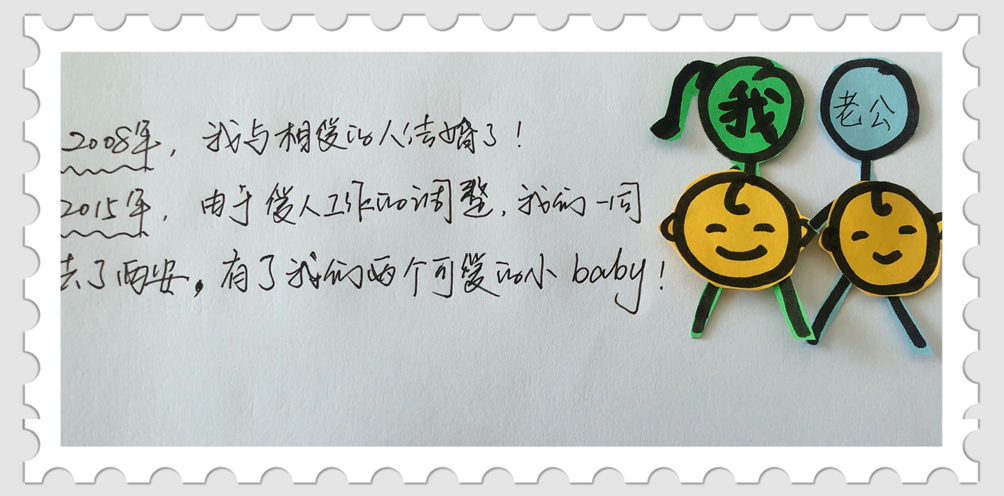 2008年，我与相爱的人结婚了！
2015年，由于爱人工作的调整，我们一同
去了西安，有了我们两个可爱的小baby！
我
老公